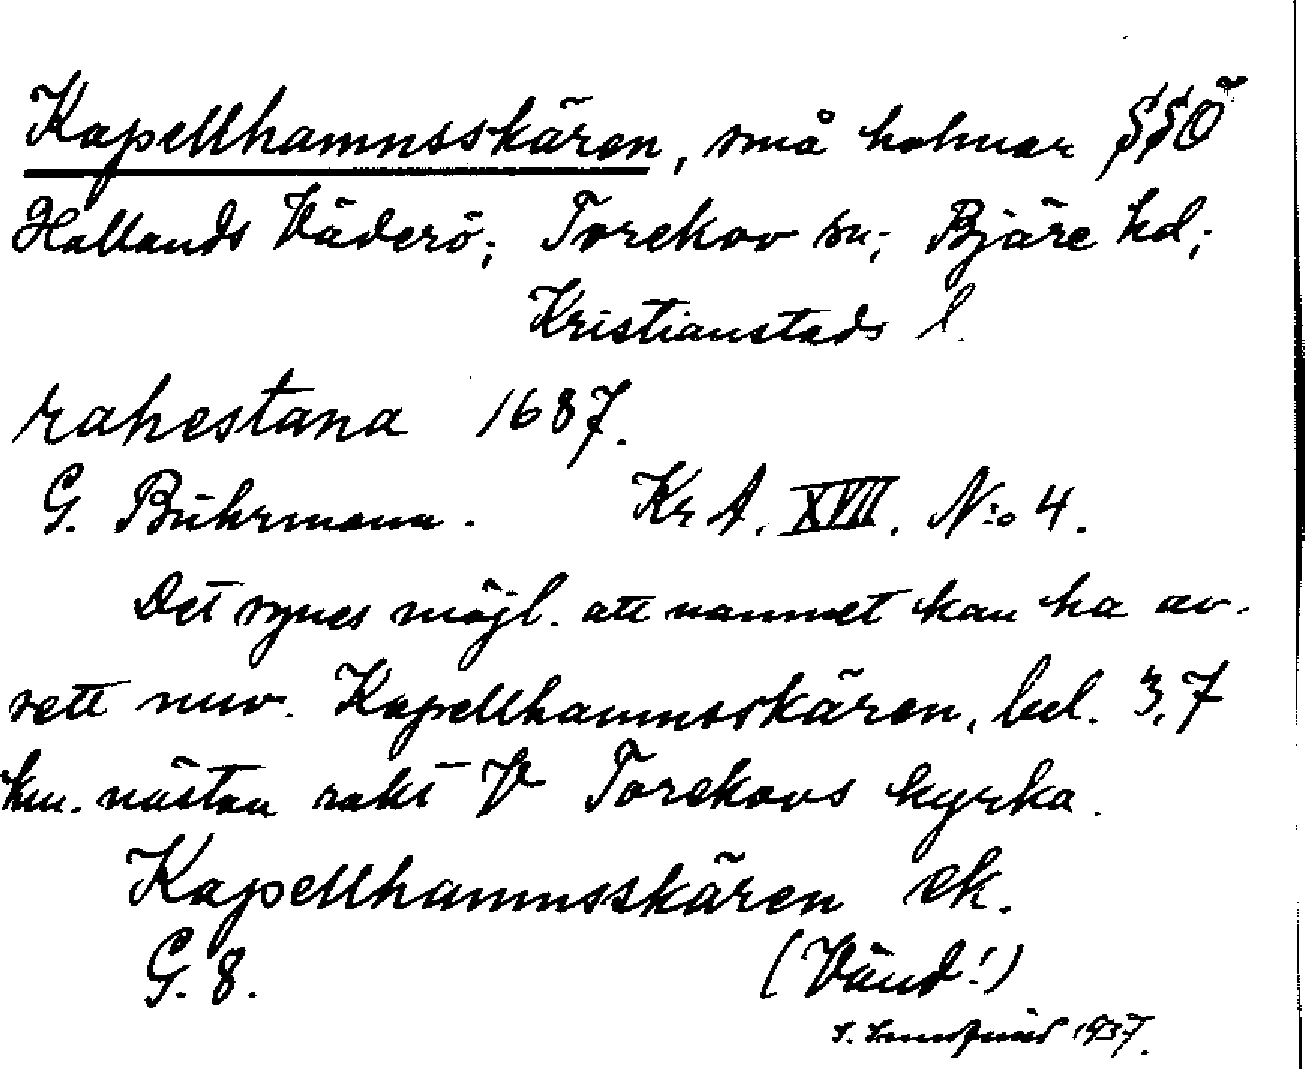 Kapellhamnsskären, små holmar SSÖ
Hallands Väderö; Torekov sn; Bjäre hd;
Kristianstads l.
rahestana 1687.
G. Bührmann. Kr A. XVII. N:o 4.
Det synes möjl. att namnet kan ha av-
sett nuv. Kapellhamnsskären, bel. 3,7
km. nästan rakt V Torekovs kyrka.
Kapellhamnsskären ek.
G. 8. (Vänd!)
1937.